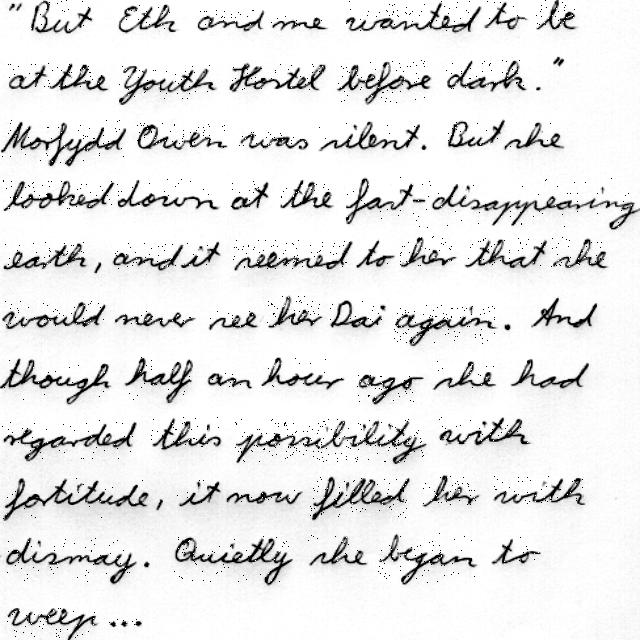 "But Eth and me wanted to be
at the Youth Hostel before dark."
Morfydd Owen was silent. But she
looked down at the fast-disappearing
earth, and it seemed to her that she
would never see her Dai again. And
though half an hour ago she had
regarded this possibility with
fortitude, it now filled her with
dismay. Quietly she began to
weep...